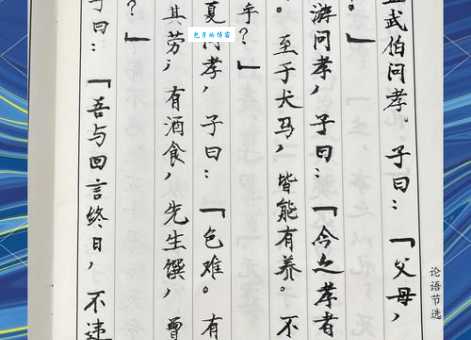 论语节选
武伯问孝。子曰：「父母，
。」
游问孝，子曰：「今之孝者
。至于犬马，皆能有养。不
乎？」
夏问孝，子曰：「色难。有
其劳；有酒食，先生馔，曾
？」
子曰：「吾与回言终日，不违